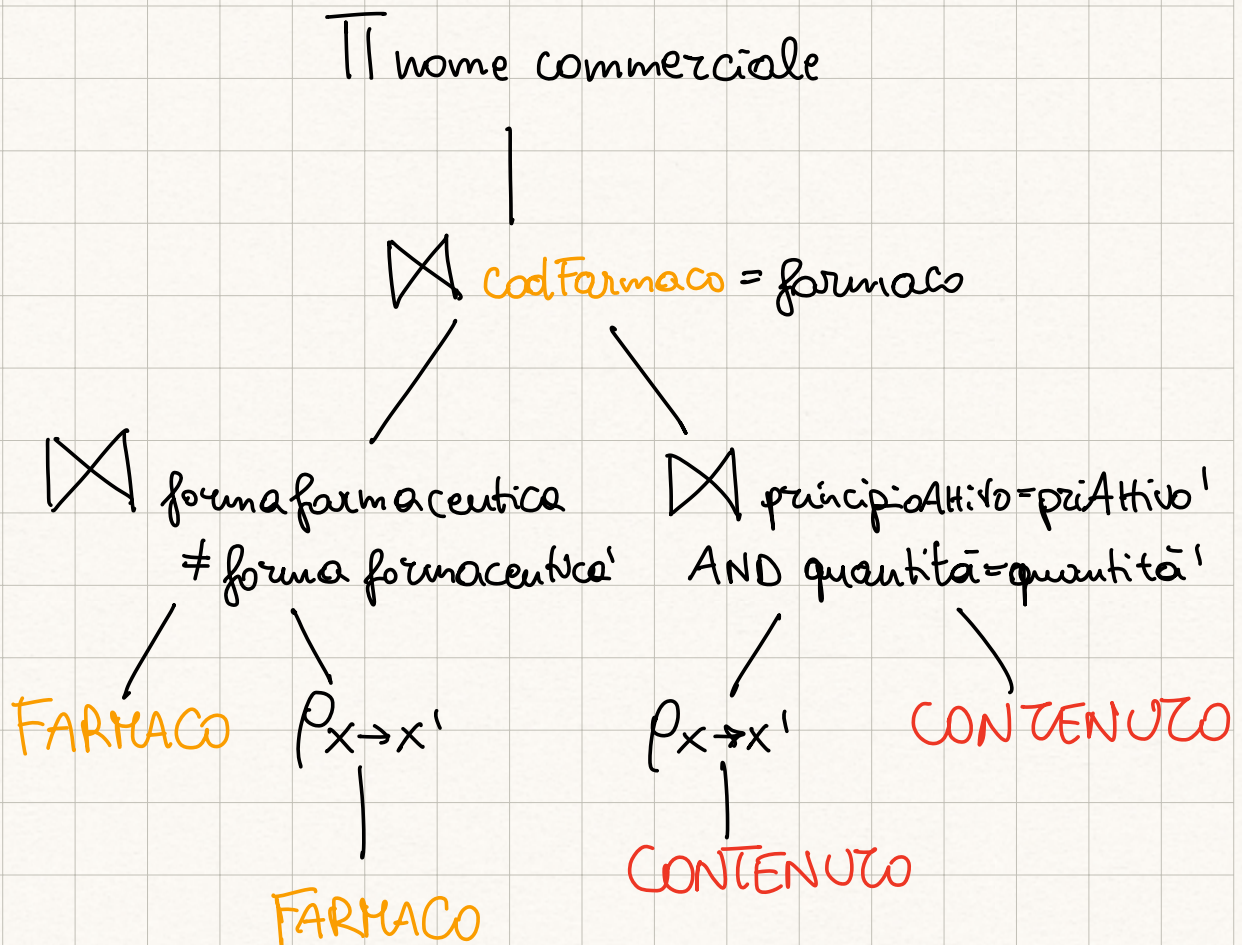 Π nome commerciale
⋈ codFarmaco = farmaco
⋈ formafarmaceutica
≠ forma farmaceutica'
⋈ principioAttivo=priAttivo'
AND quantità=quantità'
FARMACO
ρ x→x'
ρ x→x'
CONTENUTO
CONTENUTO
FARMACO